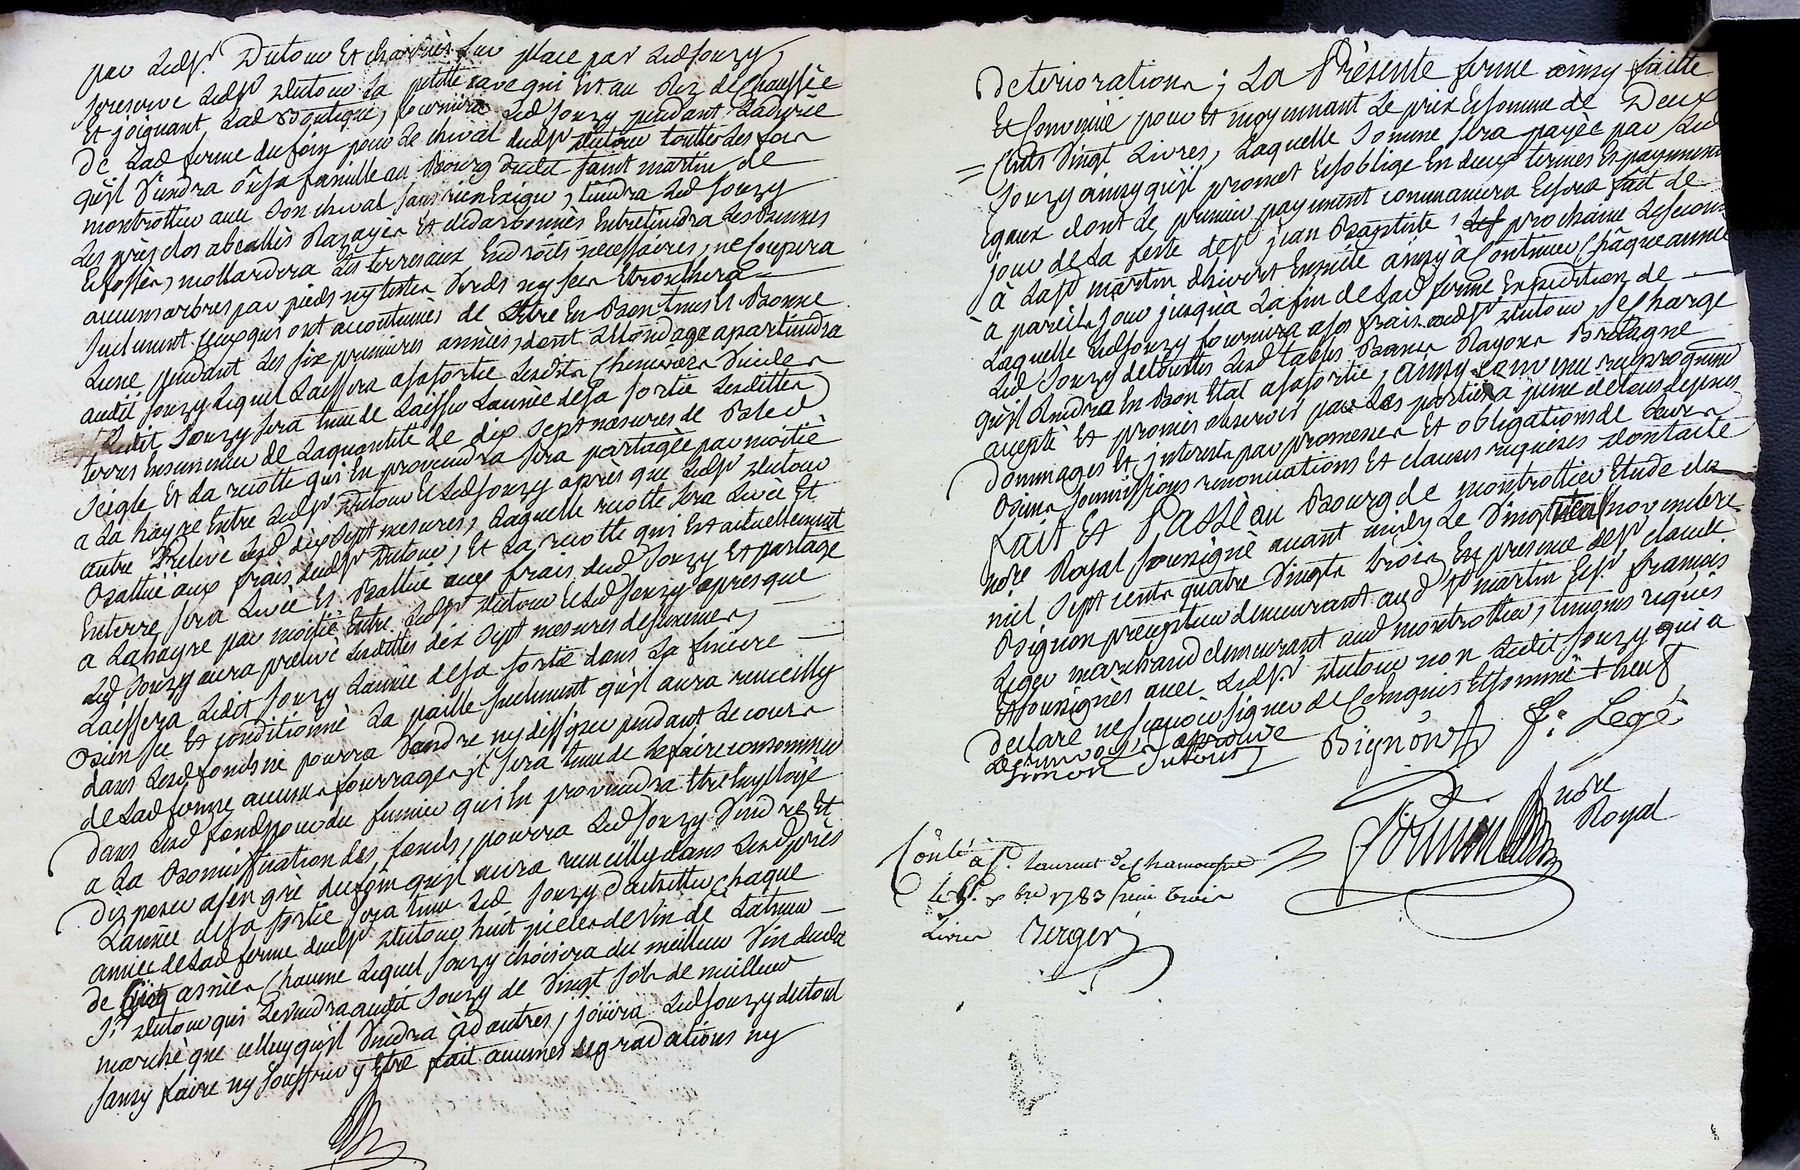 par led sr. Dutour et charriés sur place par led Jouzy,
se reserve led sr Dutour la petitte cave qui est au Rez de chaussée
et joignant lad Boutique, fournira led Jouzy pendant la durée
de lad ferme du foin pour le cheval dud sr Dutour touttes les fois
qu'il viendra ou sa famille au Bourg dudit saint martin de
montrottier avec son cheval sans rien exiger, tiendra led Jouzy
les prés clos abeallés Razayés et dedarbonnés Entretiendra les
et fossés, mollardera les terres aux Endroits necessaires, ne Coupera
aucuns arbres par pieds ny testes Verds ny secs Ebranchera
seulement ceux qui ont accoutumés de l'Etre En Bon tems et Bonne
Lune pendant les six premieres années, dont l'Ellondage apartiendra
audit Jouzy lequel laissera a sa sortie lesdits
ledit Jouzy sera tenu de laisser l'année de sa sortie lesdittes
terres Ensemencées de la quantité de dix sept mesures de Bled
seigle Et la recolte qui En proviendra sera partagée par moitié
a la hayre Entre led sr Dutour et led Jouzy après que led sr Dutour
aura Prelevé lesd dix sept mesures, laquelle recolte sera levée Et
Battüe aux frais dud sr Dutour, Et la recolte qui Est actuellement
Enterre sera levée et Battüe aux frais dud Jouzy Et partagé
a la hayre par moitié Entre led sr Dutour et led Jouzy apres que
led Jouzy aura prelevé lesdittes dix sept mesures de semences,
laissera ledit Jouzy l'année de sa sortie dans la finiere
Bien sec Et conditionné la paille seulement qu'il aura reeceilly
dans lesd fonds ne pourra vendre ny dissiper pendant le cours
de lad ferme aucuns fourrages, il sera tenu de le faire consommer
dans lesd fonds pour du fumier qui En proviendra Etre Employé
a la Bonniffication des fonds, pourra led Jouzy vendre Et
disposer a son gré du foin qu'il aura recueilly dans lesd prés
l'année de sa sortie sera tenu led Jouzy d'achetter Chaque
année de lad ferme dud sr Dutour huit pieces de vin de
de cinq asnées chacune lequel Jouzy choisira du meilleur vin dud
sr Dutour qui le vendra audit Jouzy de vingt sols de meilleur
marché que celluy qu'il vendra à d'autres, jouira led Jouzy du tout
sans y faire ny souffrir y Etre fait aucunes degradations ny
deteriorations; La Présente ferme ainsy faitte
Et Convenüe pour et moyennant le prix Et somme de Deux
= Cents Vingt Livres, Laquelle Somme sera payée par led
Jouzy ainsy qu'il promet Et s'oblige En deux termes Et payements
egaux dont le premier payement commancera Et sera fait le
jour de la feste de st jean Baptiste prochaine le second
à la st martin d'hivert Ensuite ainsy à Continuer Châque année
à pareils jour jusqu'à la fin de lad ferme Expedition de
Laquelle led Jouzy fournira a ses frais aud sr Dutour, se charge
led Jouzy de touttes lesd tables Bancs Rayons
qu'il rendra En Bon Etat a sa sortie, ainsy convenu reciproquement
accepté Et promis observer par les parties a peine de tous depens
Dommages Et interests par promesses Et obligations de leurs
Biens soumissions renonciations Et clauses requises Dont acte
Fait Et Passé au Bourg de montrottier Etude du
nore Royal soussigné avant midy le vingt novembre
mil sept cents quatre vingts trois En presence de sr claude
Bignon precepteur demeurant aud st martin et sr. francois
Leger marchand demeurant aud montrottier, temoins requis
Et soussignés avec led sr Dutour non ledit Jouzy qui a
declaré ne sçavoir signer de Ce enquis Et sommé + neuf
aprouvé
Simon Dutour
Bignon
F. Legé
nore
Royal
Conlé à st. Laurent de chamousset
le xbre 1783 trois
livres Berger